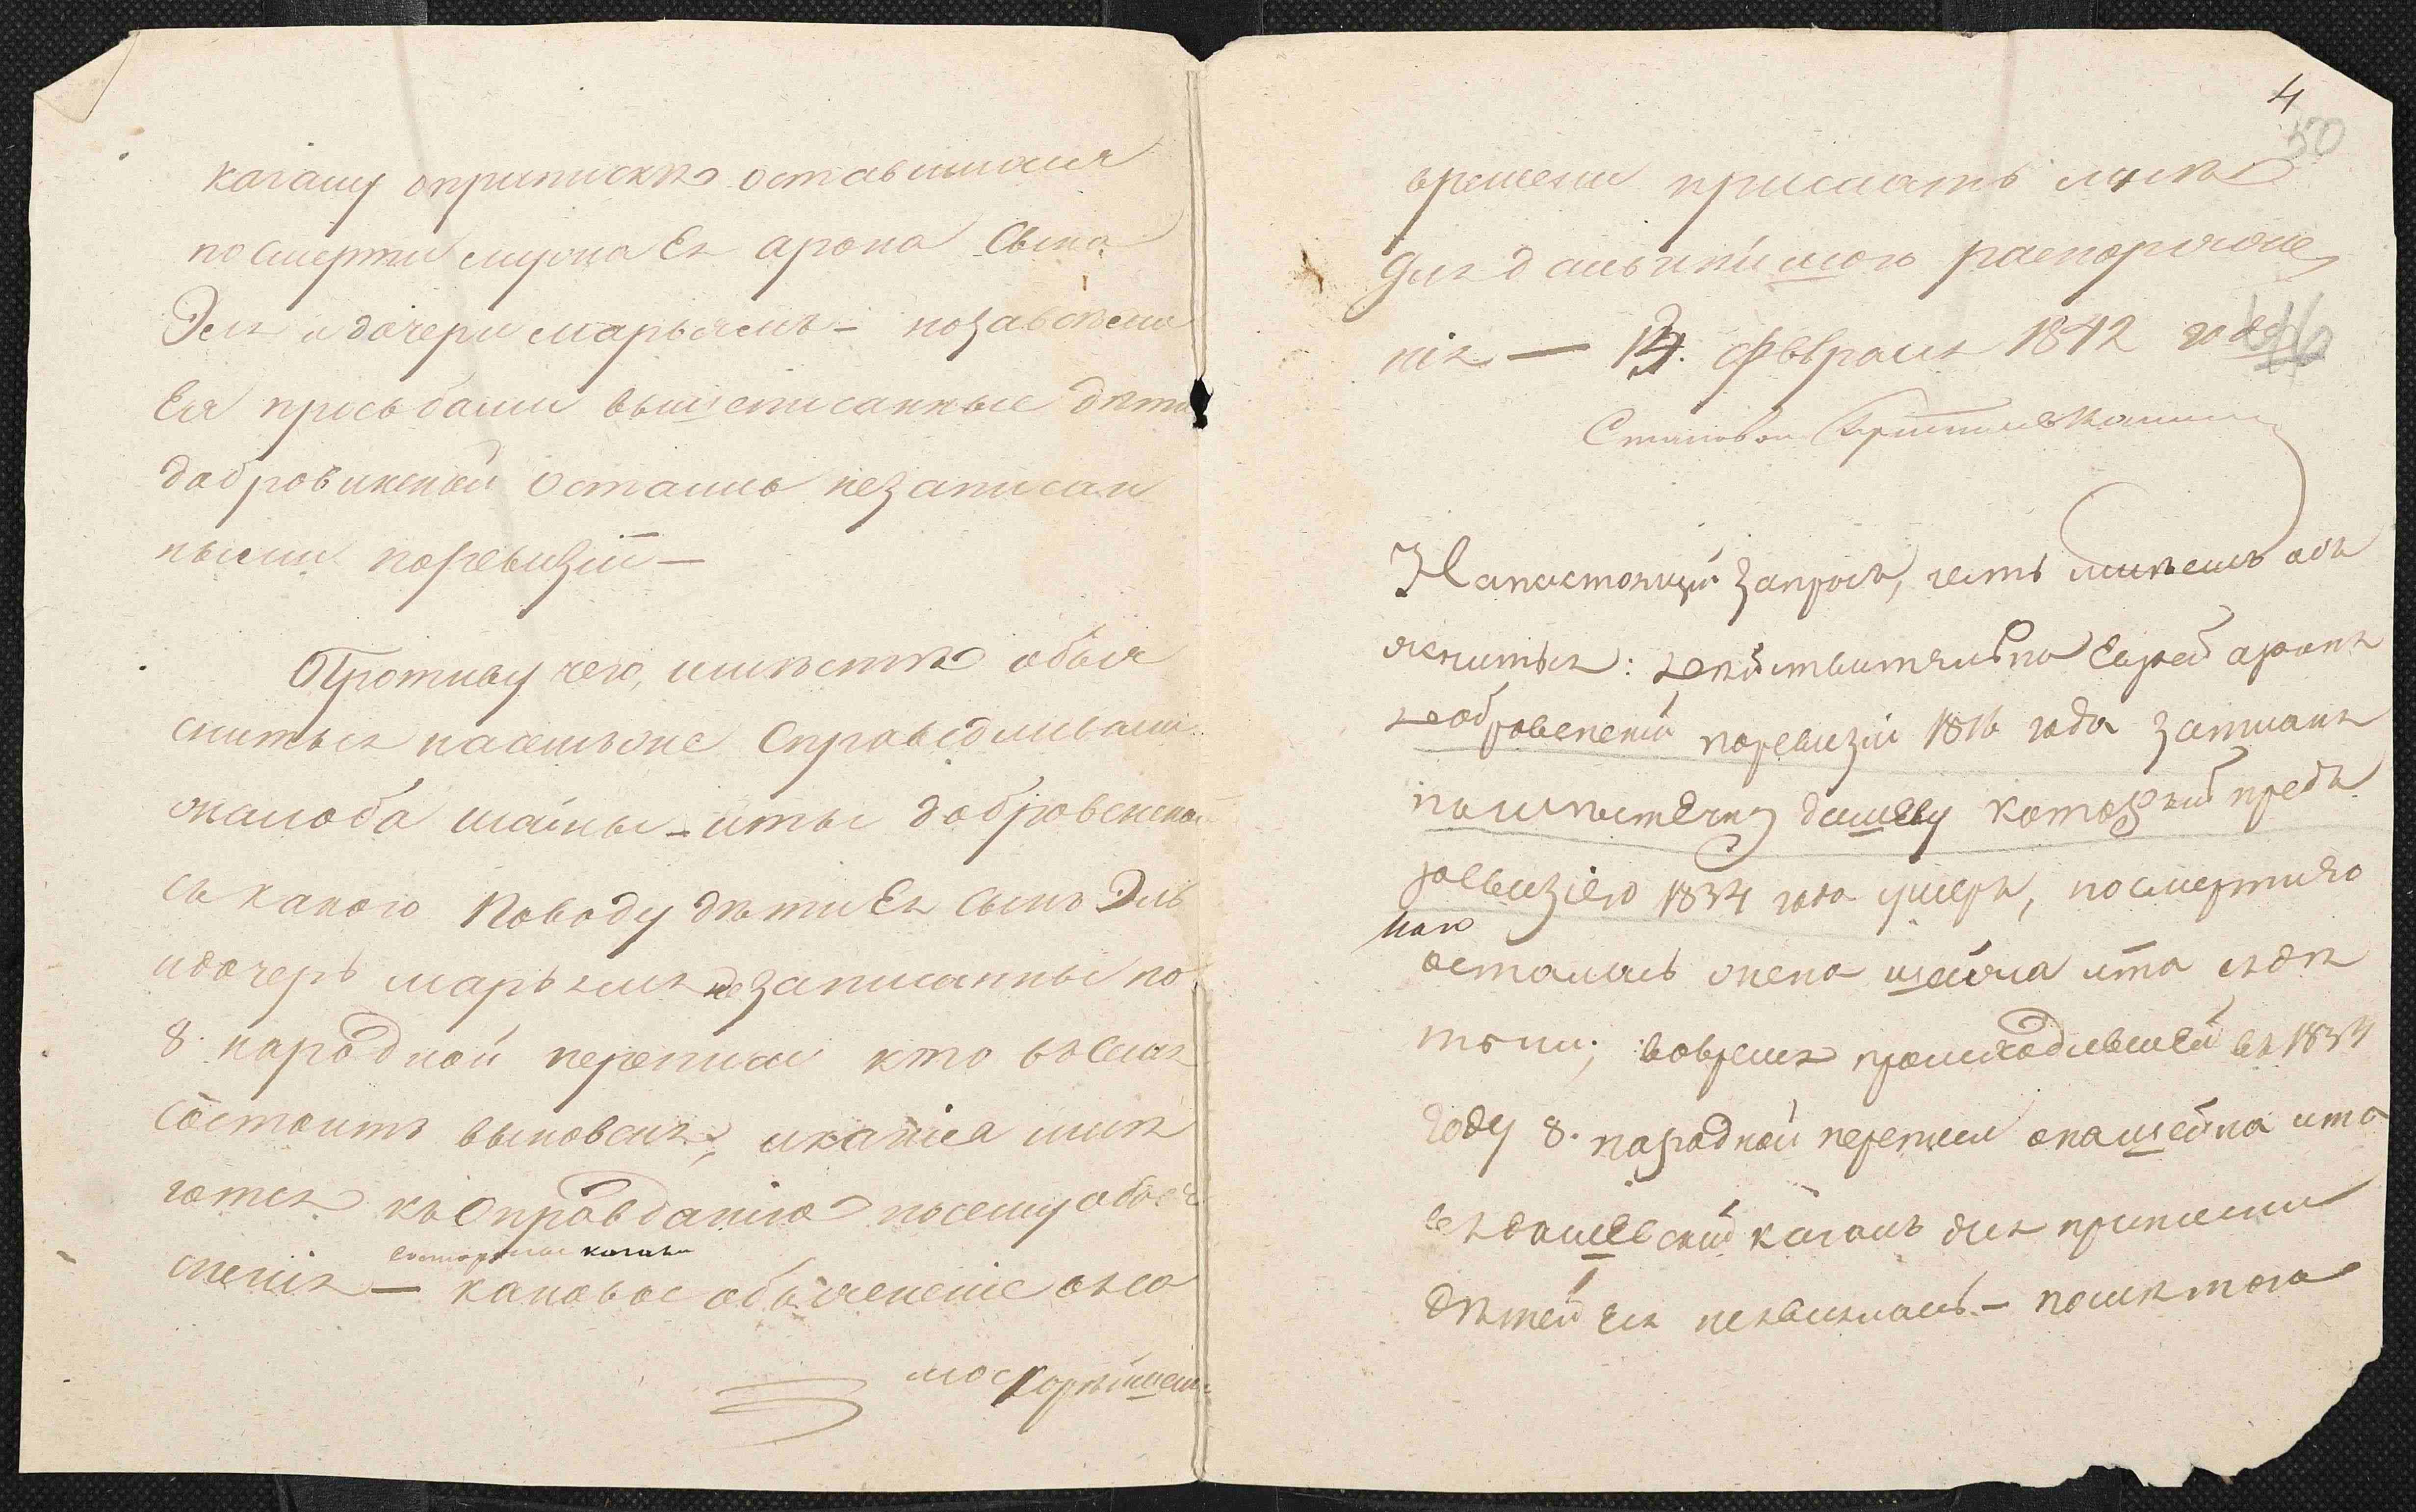 кагалу оприпискѣ оставшихся
посмерти мужа Ея арона сына
Эля идочери марьямъ — нозавсѣми
Ея прозьбами вышеписанные дѣти
добровинской остались незаписан
ными поревизіи —
Противу чего, имѣетъ объя
сниться наасиьоне Справедлива ли
жалоба шайны — иты добровенской
съ какого поводу дѣти Ея сынъ Эль
идочерь марьямъ незаписанные по
8. народной переписи кто въсемъ
состоитъ выновенъ, икакіа имѣ
ются къ Оправданію посему объя
сненія — каковое объясненіе онсо
кагалъ
мос корѣйшем
4
50
времени прислать мнѣ
для дальнѣйшого распоряже
нія — 14. февраля 1842 года
46
Становой Приставъ
Нанастоящій Запросъ, честь имѣемъ объ
ясниться: действительно Еврей аронъ
добровенскій поревизіи 1816 года записанъ
помѣстечку дашеву который предъ
ревизіею 1834 года умеръ, посмерти его
осталась жена шейна ита сдѣ
тьми; вовремя происходившей въ 1834
году 8. народной переписи онашейна ита
въдашевскій кагалъ для приписки
дѣтей Ея неявилась — послѣ того